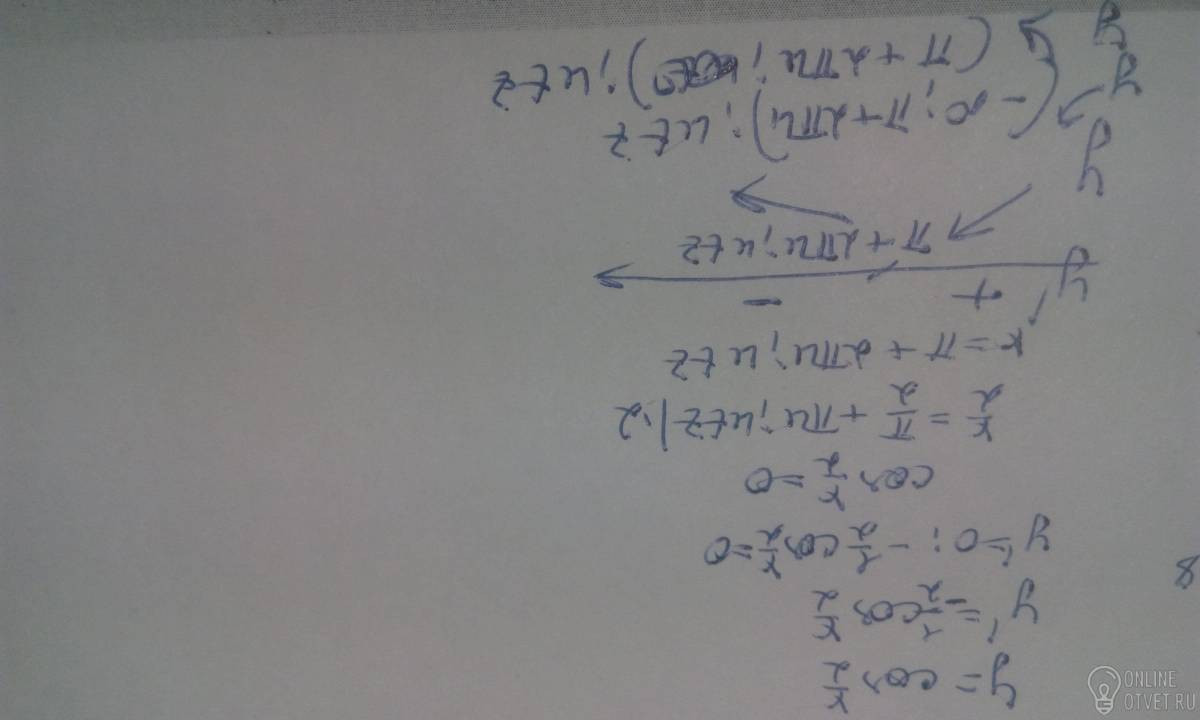 8
y = cos x/2
y' = -1/2 cos x/2
y' = 0: -1/2 cos x/2 = 0
cos x/2 = 0
x/2 = π/2 + πn; n∈Z |·2
x = π + 2πn; n∈Z
y' + -
π + 2πn; n∈Z
y
y (-∞; π+2πn); n∈Z
y (π + 2πn; ∞); n∈Z
ONLINE
OTVET.RU